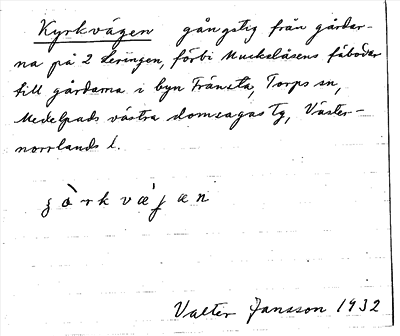 Kyrkvägen gångstig från gårdar-
na på 2 Leringen, förbi Muckelåsens fäbodar
till gårdarna i byn Fränsta, Torps sn,
Medelpads västra domsagas tg, Väster-
norrlands l.
Valter Jansson 1932